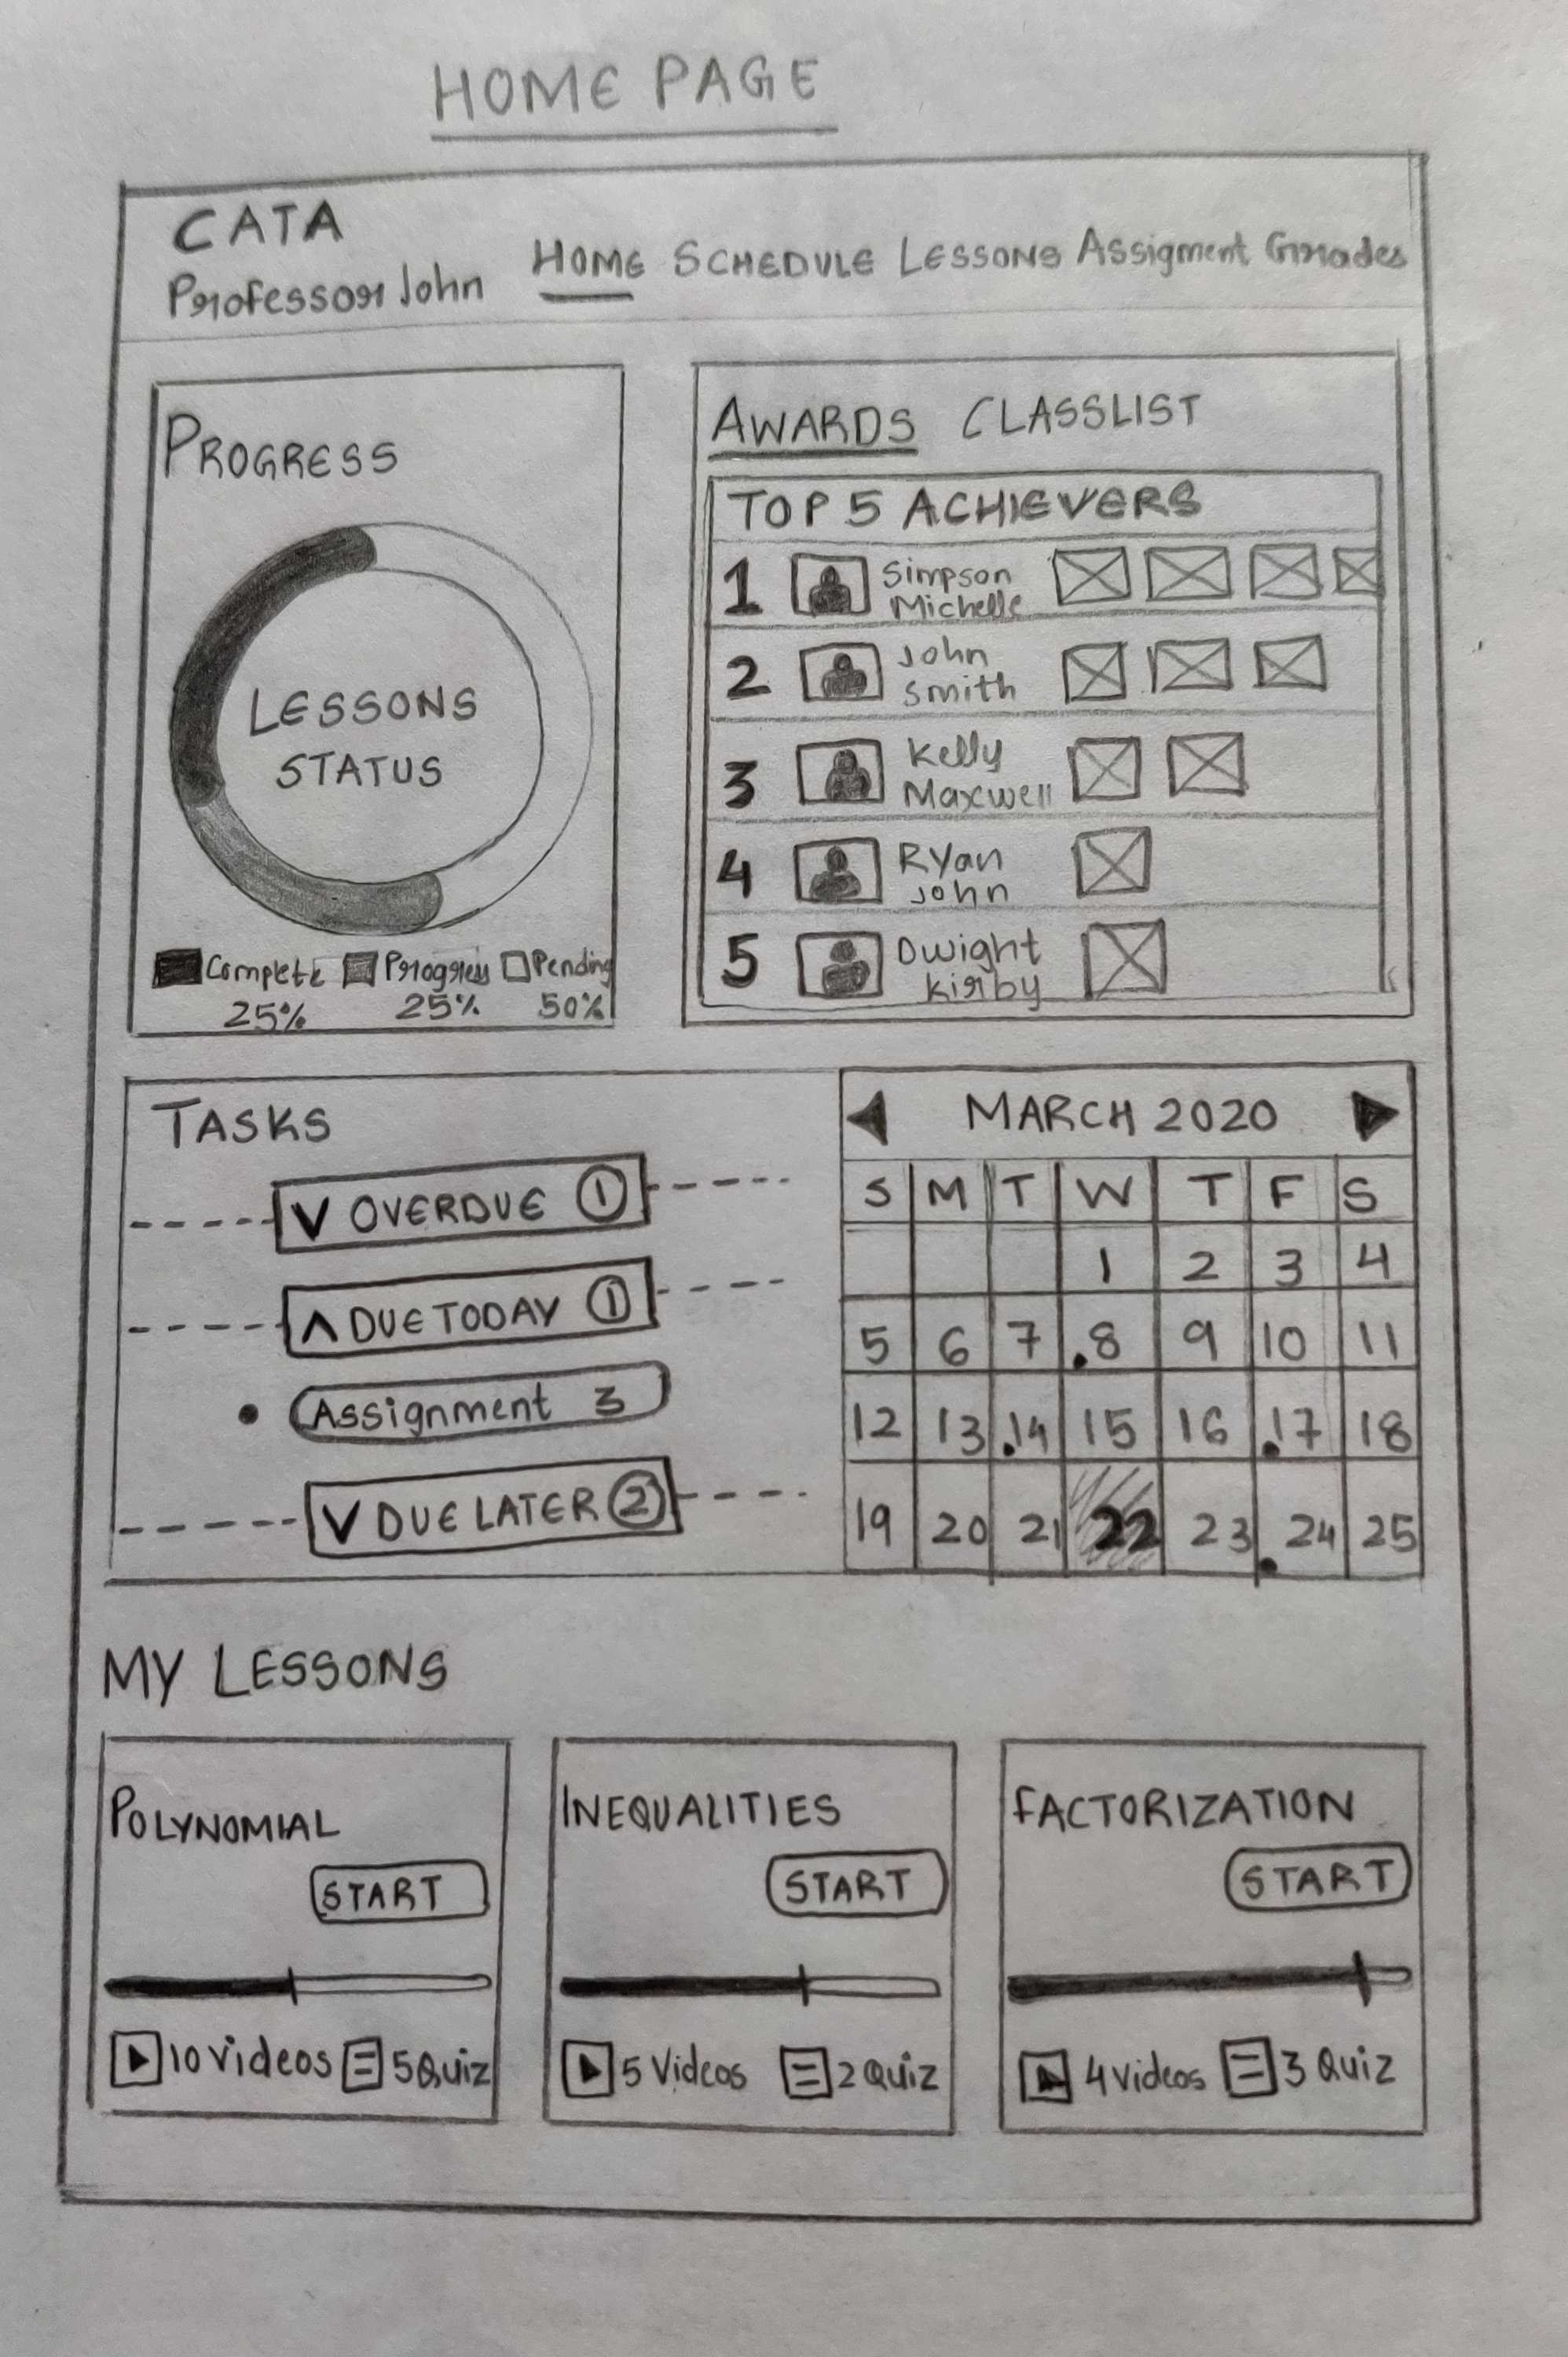 HOME PAGE
CATA
Professor John
HOME SCHEDULE LESSONS Assigment Grades
PROGRESS
LESSONS
STATUS
Complete Progress Pending
25% 25% 50%
AWARDS CLASSLIST
TOP 5 ACHIEVERS
1 Simpson
Michelle
2 John
Smith
3 Kelly
Maxwell
4 Ryan
John
5 Dwight
Kirby
TASKS
V OVERDUE 1
Λ DUE TODAY 1
• Assignment 3
V DUE LATER 2
MARCH 2020
S M T W T F S
1 2 3 4
5 6 7 .8 9 10 11
12 13 .14 15 16 .17 18
19 20 21 22 23 .24 25
MY LESSONS
POLYNOMIAL
START
10 Videos 5 Quiz
INEQUALITIES
START
5 Videos 2 Quiz
FACTORIZATION
START
4 Videos 3 Quiz